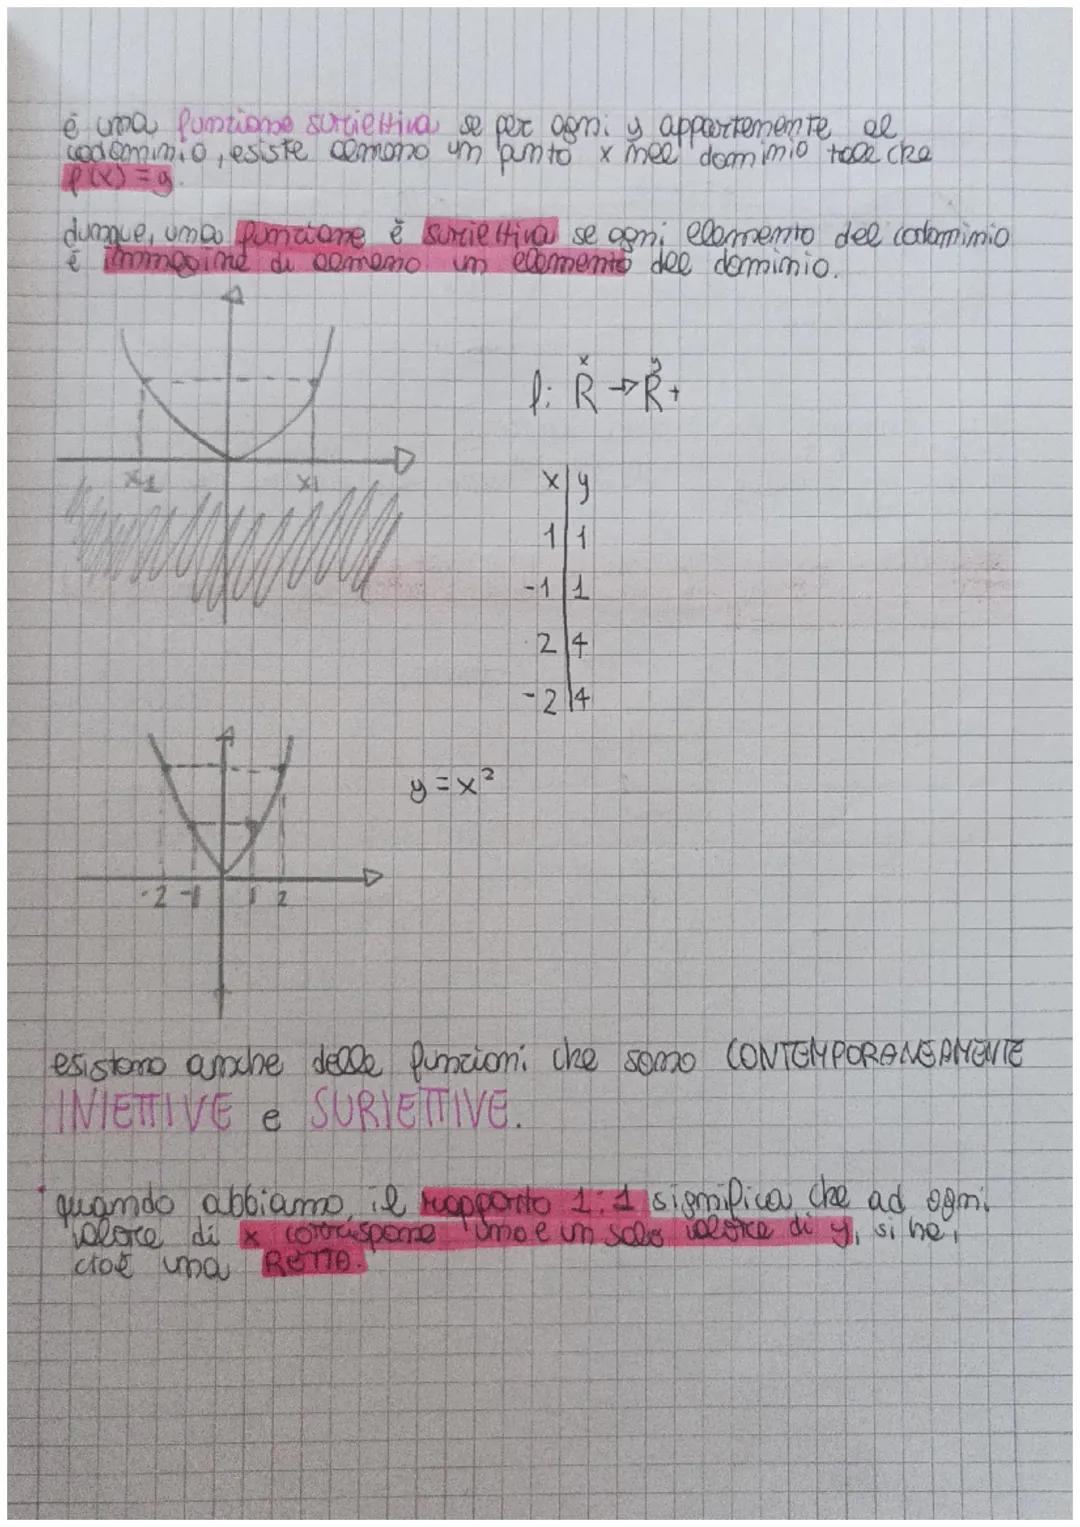 è una funzione suriettiva se per ogni y appartenente al
codominio, esiste almeno un punto x nel dominio tale che
f(x)=y.
dunque, una funzione è suriettiva se ogni elemento del codominio
è immagine di almeno un elemento del dominio.
x y
f: R → R+
x1 x1
x | y
1 | 1
-1 | 1
2 | 4
-2 | 4
y = x²
-2 -1 1 2
esistono anche delle funzioni che sono CONTEMPORANEAMENTE
INIETTIVE e SURIETTIVE.
quando abbiamo il rapporto 1:1 significa che ad ogni
valore di x corrispone uno e un solo valore di y, si ha,
cioè una RETTA.